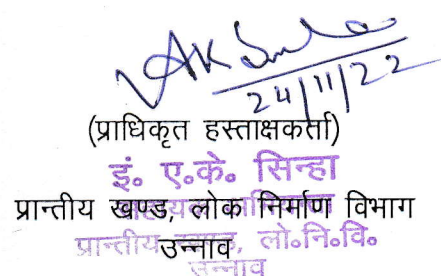 AK Sinha
24/11/22
(प्राधिकृत हस्ताक्षकर्ता)
इं. ए.के. सिन्हा
प्रान्तीय खण्ड, लोक निर्माण विभाग
प्रान्तीय लो.नि.वि.
उन्नाव
उन्नाव